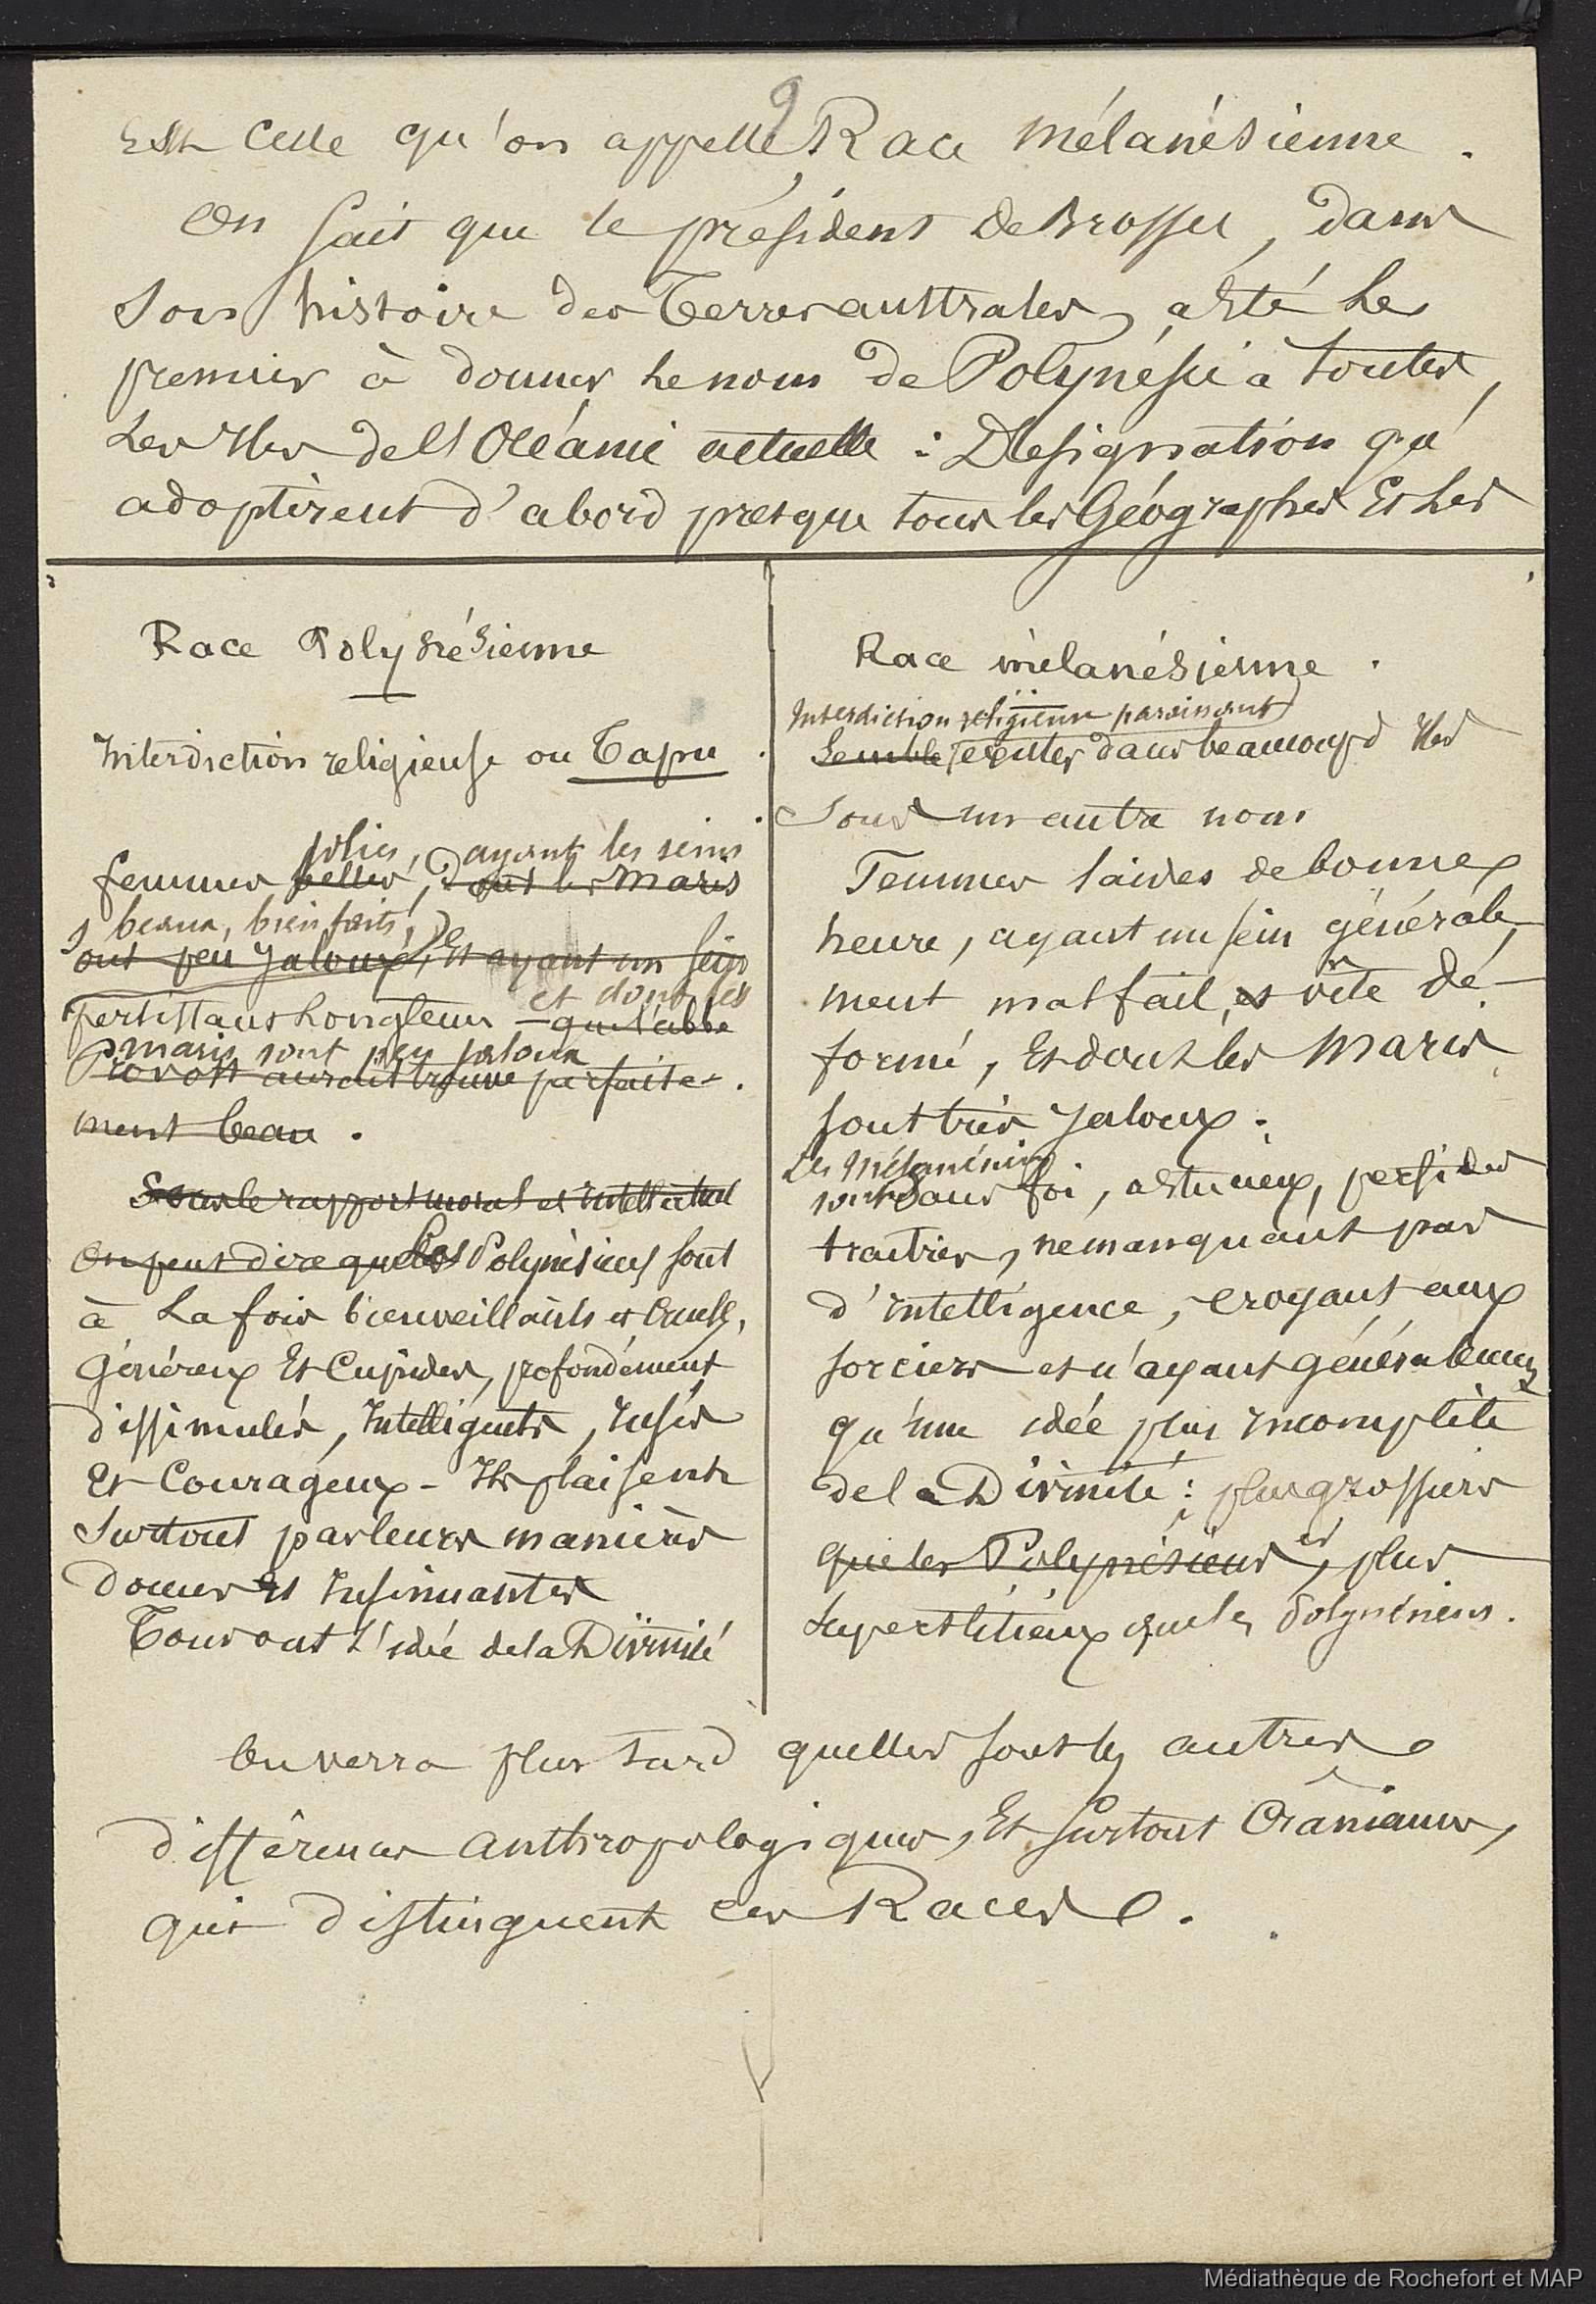 9
Est Celle qu'on appelle, Race Mélanésienne.
On sait que le président DeBrosses, dans
son histoire des Terres australes, a été le
premier à donner le nom de Polynésie à toutes,
Les Iles de l'Océanie actuelle : Désignation qu'
adoptèrent d'abord presque tous les Géographes Et les
Race Polynésienne
Interdiction religieuse ou Tapu.
jolies, ayant les seins
femmes belles, dont les maris
beaux, bien faits,
sont peu Jaloux, et ayant un sein
persistans Longtems et dont les
que l'abbé
maris sont peu jaloux
Prevost aurait trouvé parfaite-
ment beau.
Sous le rapport moral et intellectuel
On peut dire que Les Polynésiens sont
à La fois bienveillants et Cruels,
Généreux Et Cupides, profondément
dissimulés, Intelligents, rusés
Et Courageux - Ils plaisent
Surtout par leurs manières
Douces Et Insinuantes
Tous ont l'idée de la Divinité
Race mélanésienne.
Interdiction religieuse paraissant
Semble exister dans beaucoup d'Iles
Sous un autre nom
Femmes laides de bonne
heure, ayant un sein générale
ment mal fait, et vite dé-
formé, Et dont les Maris
sont très Jaloux.
Les Mélanésiens
sont Sans foi, astucieux, perfides
traitres, ne manquant pas
d'intelligence, croyant aux
sorciers et n'ayant généralement
qu'une idée plus incomplète
de la Divinité : plus grossiers
que les Polynésiens et, plus
Superstitieux que les Polynésiens.
On verra plus tard quelles sont les autres
différences anthropologiques, Et surtout Crâniennes,
qui distinguent ces Races.
Médiathèque de Rochefort et MAP